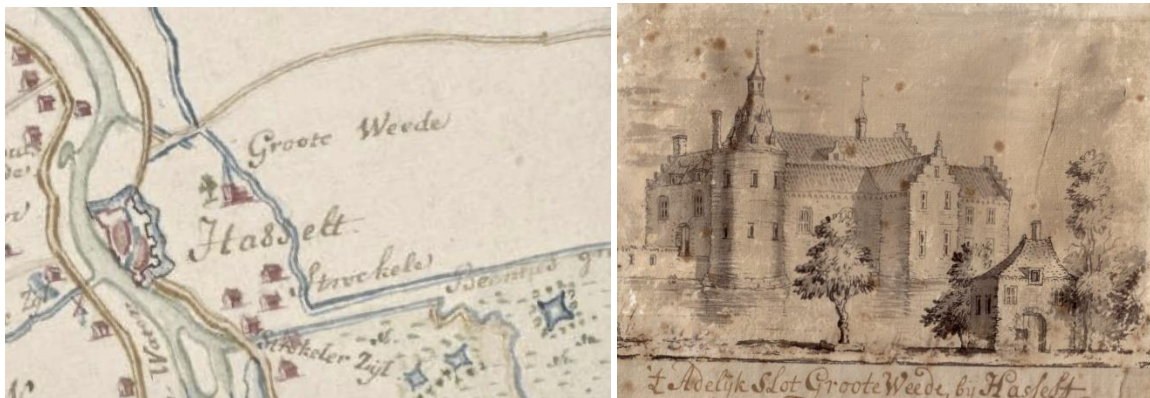 Groote Weede
Hasselt
Streekele
Beentjes gr
Streekeler Zijl
Zijl
't Adelyk Slot Groote Weede, by Hasselt